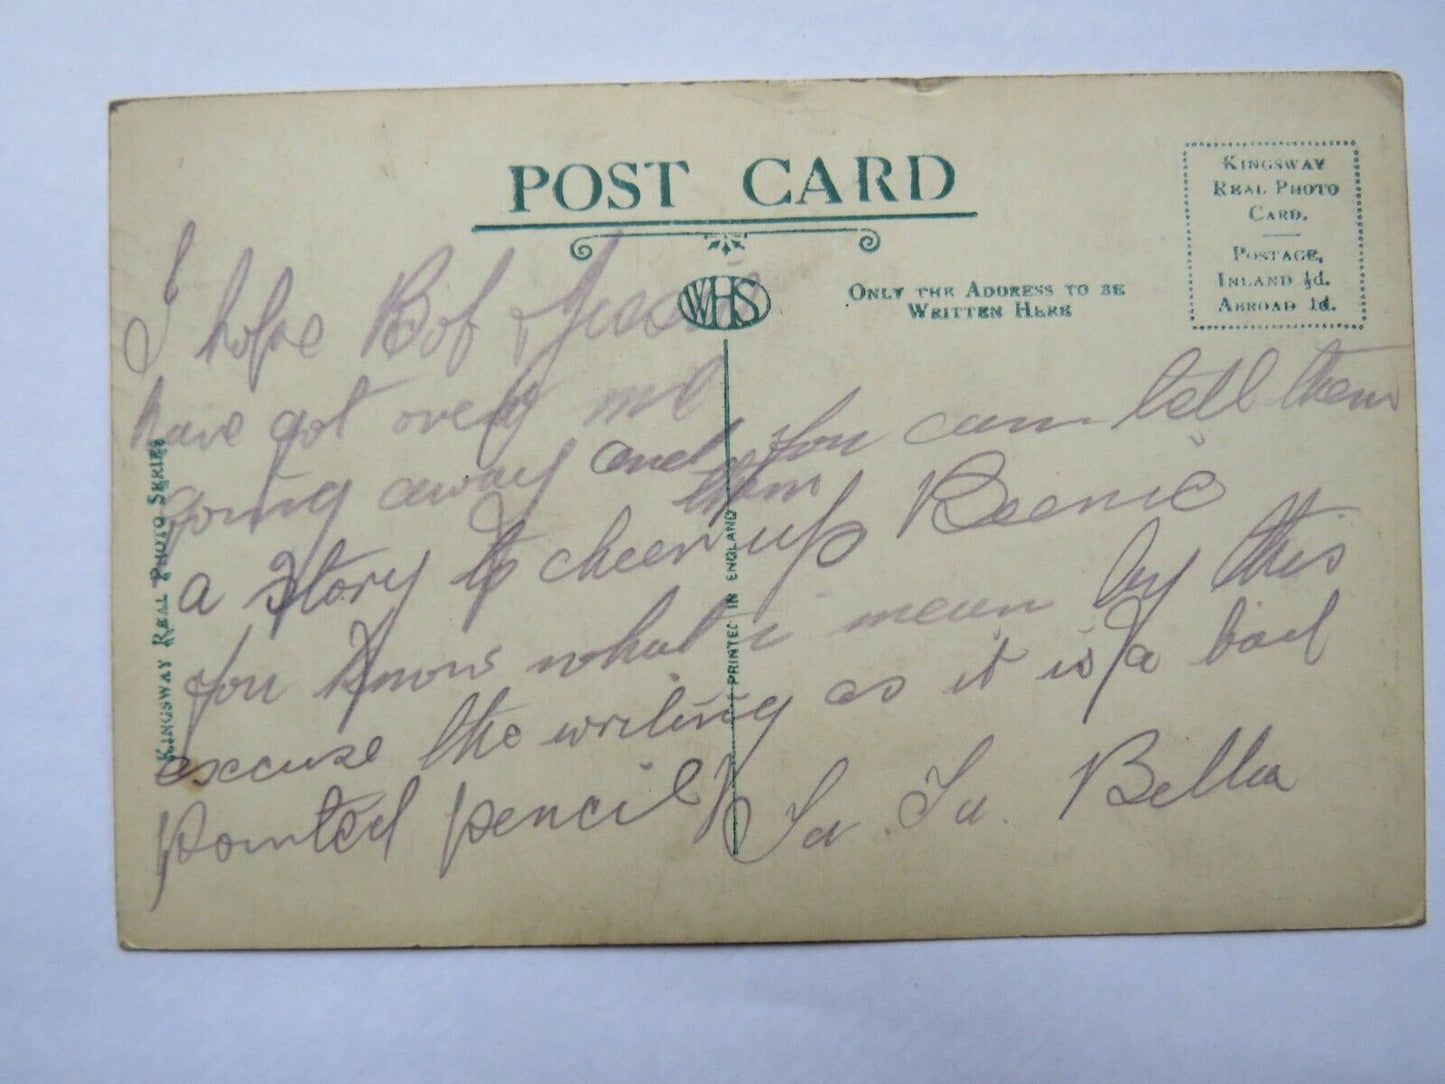 POST CARD
KINGSWAY
REAL PHOTO
CARD.
POSTAGE,
INLAND ½d.
ABROAD 1d.
WHS
ONLY THE ADDRESS TO BE
WRITTEN HERE
KINGSWAY REAL PHOTO SERIES
PRINTED IN ENGLAND
I hope Bob & Jessie
have got over me
going away and you can tell them
a story to cheer them up Beenie
you know what i mean by this
excuse the writing as it is a bad
pointed pencil Ta. Ta. Bella